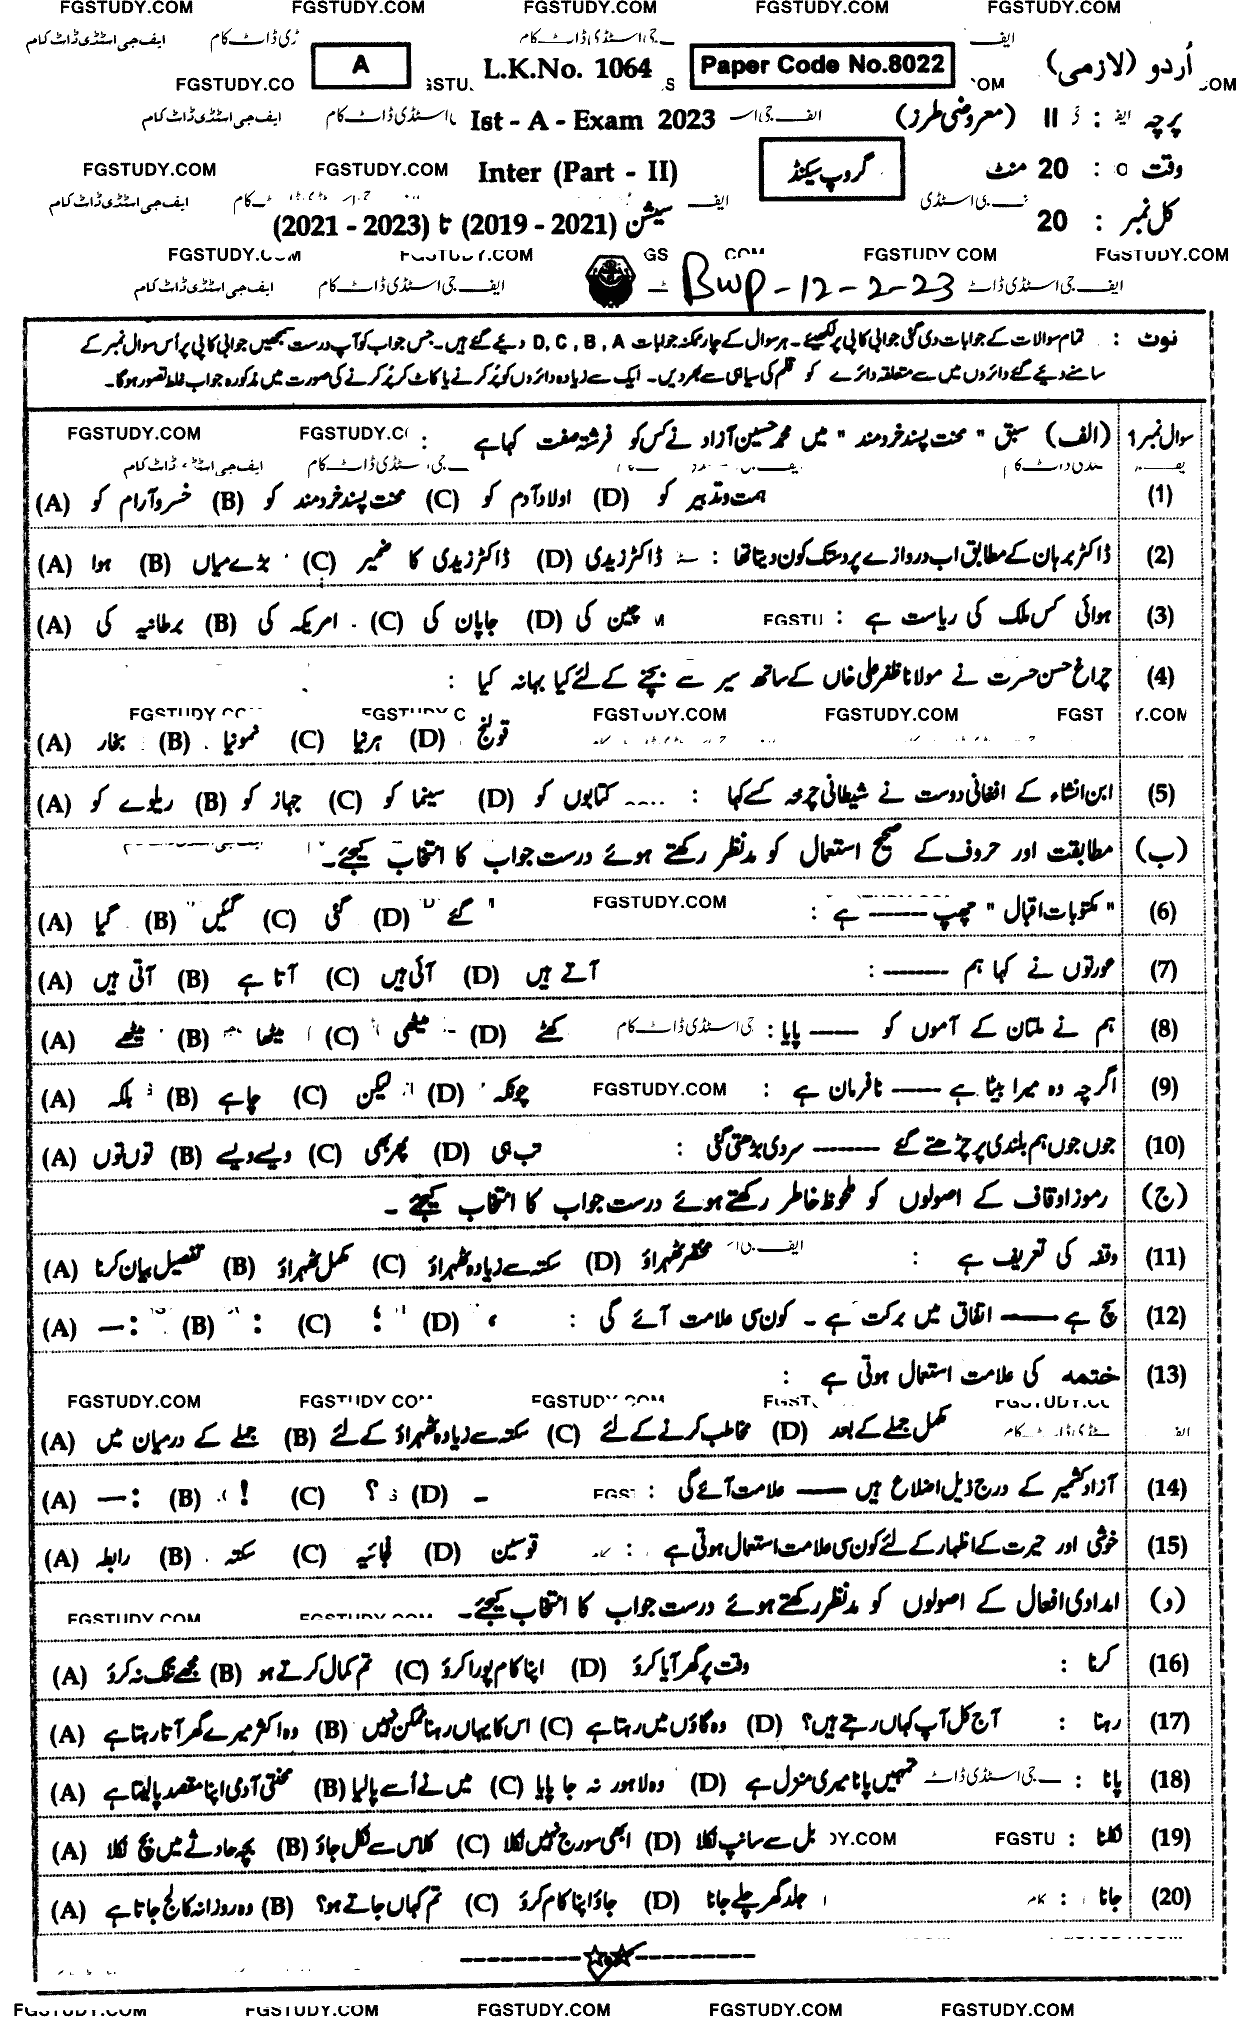 FGSTUDY.COM FGSTUDY.COM FGSTUDY.COM FGSTUDY.COM FGSTUDY.COM
اُردو (لازمی) Paper Code No.8022 L.K.No. 1064 A
پرچہ : II (معروضی طرز) Ist - A - Exam 2023
وقت : 20 منٹ گروپ سیکنڈ Inter (Part - II)
کل نمبر : 20 سیشن (2019 - 2021) تا (2021 - 2023)
BWP-12-2-23
نوٹ : تمام سوالات کے جوابات دی گئی جوابی کاپی پر لکھیئے ۔ ہر سوال کے چار ممکنہ جوابات D, C, B, A دیے گئے ہیں۔ جس جواب کو آپ درست سمجھیں جوابی کاپی پر اُس سوال نمبر کے
سامنے دیئے گئے دائروں میں سے متعلقہ دائرے کو قلم کی سیاہی سے بھر دیں۔ ایک سے زیادہ دائروں کو پُر کرنے یا کاٹ کر پُر کرنے کی صورت میں مذکورہ جواب غلط تصور ہوگا۔
سوال نمبر 1 (الف) سبق " محنت پسند خردمند " میں محمد حسین آزاد نے کس کو فرشتہ صفت کہا ہے :
(1) (A) خسرو آرام کو (B) محنت پسند خردمند کو (C) اولاد آدم کو (D) ہمت و تدبیر کو
(2) ڈاکٹر برہان کے مطابق اب دروازے پر دستک کون دیتا تھا : (A) ہوا (B) بڑے میاں (C) ڈاکٹر زیدی کا ضمیر (D) ڈاکٹر زیدی
(3) ہوائی کس ملک کی ریاست ہے : (A) برطانیہ کی (B) امریکہ کی (C) جاپان کی (D) چین کی
(4) چراغ حسن حسرت نے مولانا ظفر علی خاں کے ساتھ سیر سے بچنے کے لئے کیا بہانہ کیا :
(A) بخار (B) نمونیا (C) ہرنیا (D) قولنج
(5) ابن انشاء کے افغانی دوست نے شیطانی چرخہ کسے کہا : (A) ریلوے کو (B) جہاز کو (C) سینما کو (D) کتابوں کو
(ب) مطابقت اور حروف کے صحیح استعمال کو مدنظر رکھتے ہوئے درست جواب کا انتخاب کیجئے۔
(6) " مکتوبات اقبال " چھپ ------ ہے : (A) گیا (B) گئیں (C) گئی (D) گئے
(7) عورتوں نے کہا ہم ------ : (A) آتی ہیں (B) آتا ہے (C) آئی ہیں (D) آتے ہیں
(8) ہم نے ملتان کے آموں کو ------ پایا : (A) میٹھے (B) میٹھا (C) میٹھی (D) کھٹے
(9) اگرچہ وہ میرا بیٹا ہے ------ نافرمان ہے : (A) بلکہ (B) چاہے (C) لیکن (D) چونکہ
(10) جوں جوں ہم بلندی پر چڑھتے گئے ------ سردی بڑھتی گئی : (A) توں توں (B) ویسے ویسے (C) پھر بھی (D) تب ہی
(ج) رموز اوقاف کے اصولوں کو ملحوظ خاطر رکھتے ہوئے درست جواب کا انتخاب کیجئے ۔
(11) وقفہ کی تعریف ہے : (A) تفصیل بیان کرنا (B) مکمل ٹھہراؤ (C) سکتہ سے زیادہ ٹھہراؤ (D) مختصر ٹھہراؤ
(12) سچ ہے ------ اتفاق میں برکت ہے ۔ کون سی علامت آئے گی : (A) :— (B) : (C) ؛ (D) ،
(13) ختمہ کی علامت استعمال ہوتی ہے :
(A) جملے کے درمیان میں (B) سکتہ سے زیادہ ٹھہراؤ کے لئے (C) مخاطب کرنے کے لئے (D) مکمل جملے کے بعد
(14) آزاد کشمیر کے درج ذیل اضلاع ہیں ------ علامت آئے گی : (A) :— (B) ! (C) ؟ (D) ۔
(15) خوشی اور حیرت کے اظہار کے لئے کون سی علامت استعمال ہوتی ہے : (A) رابطہ (B) سکتہ (C) فجائیہ (D) قوسین
(د) امدادی افعال کے اصولوں کو مدنظر رکھتے ہوئے درست جواب کا انتخاب کیجئے۔
(16) کرنا : (A) مجھے تنگ نہ کرؤ (B) تم کمال کرتے ہو (C) اپنا کام پورا کرؤ (D) وقت پر گھر آیا کرؤ
(17) رہنا : (A) وہ اکثر میرے گھر آتا رہتا ہے (B) اس کا یہاں رہنا ممکن نہیں (C) وہ گاؤں میں رہتا ہے (D) آج کل آپ کہاں رہتے ہیں؟
(18) پانا : (A) محنتی آدمی اپنا مقصد پا لیتا ہے (B) میں نے اُسے پا لیا (C) وہ لاہور نہ جا پایا (D) تمہیں پانا میری منزل ہے
(19) نکلنا : (A) بچہ حادثے میں بچ نکلا (B) کلاس سے نکل جاؤ (C) ابھی سورج نہیں نکلا (D) بل سے سانپ نکلا
(20) جانا : (A) وہ روزانہ کالج جاتا ہے (B) تم کہاں جاتے ہو؟ (C) جاؤ اپنا کام کرؤ (D) جلد گھر چلے جانا
FGSTUDY.COM FGSTUDY.COM FGSTUDY.COM FGSTUDY.COM FGSTUDY.COM